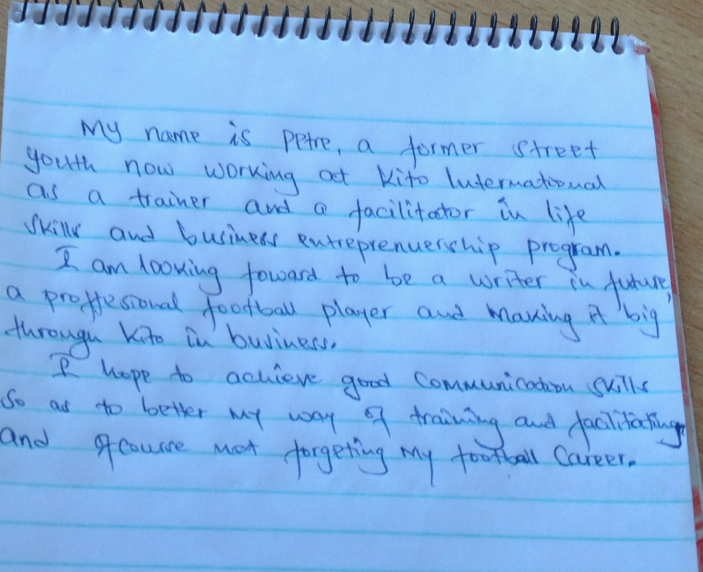 My name is Petre, a former street
youth now working at Kito International
as a trainer and a facilitator in life
skills and business entreprenuership program.
I am looking foward to be a writer in future,
a proffesional football player and making it big
through Kito in business.
I hope to achieve good communication skills
so as to better my way of training and facilitating
and ofcourse not forgeting my football career.